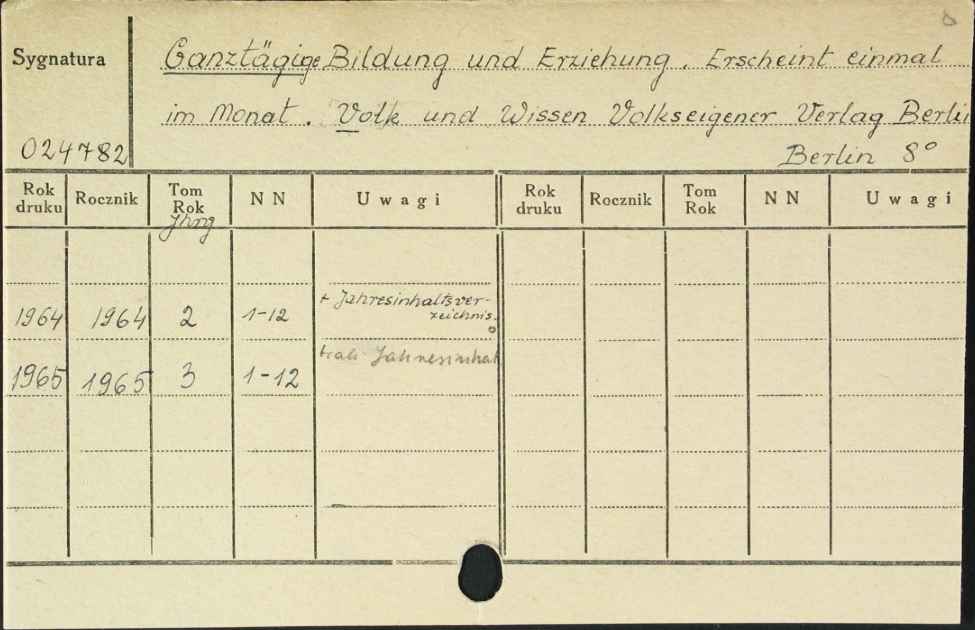 Sygnatura
Ganztägige Bildung und Erziehung. Erscheint einmal
im Monat. Volk und Wissen Volkseigener Verlag Berlin
024782
Berlin 8°
Rok druku Rocznik Tom Rok NN Uwagi Rok druku Rocznik Tom Rok NN Uwagi
Jhrg
+ Jahresinhaltsver-
zeichnis.
1964 1964 2 1-12
Jahresinhal
1965 1965 3 1-12